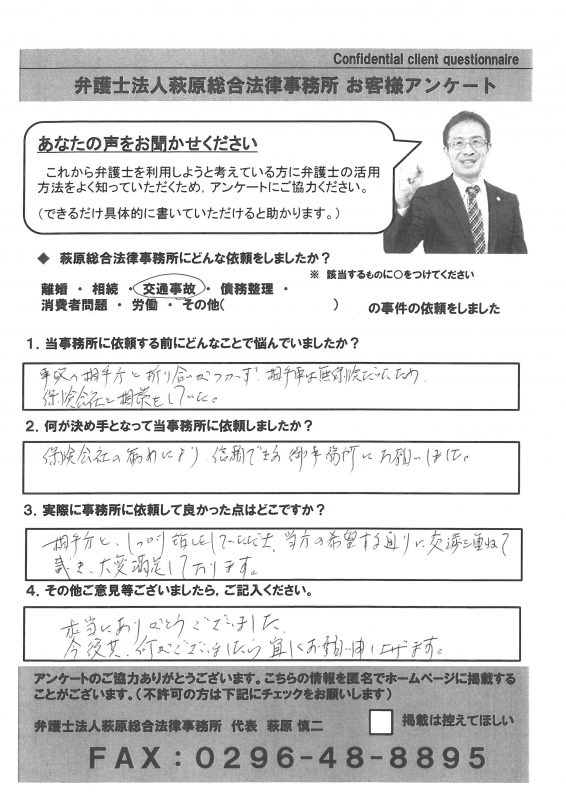 Confidential client questionnaire
弁護士法人萩原総合法律事務所 お客様アンケート
あなたの声をお聞かせください
これから弁護士を利用しようと考えている方に弁護士の活用
方法をよく知っていただくため，アンケートにご協力ください。
（できるだけ具体的に書いていただけると助かります。）
◆ 萩原総合法律事務所にどんな依頼をしましたか？
※ 該当するものに○をつけてください
離婚 ・ 相続 ・ 交通事故 ・ 債務整理 ・
消費者問題 ・ 労働 ・ その他( ) の事件の依頼をしました
1．当事務所に依頼する前にどんなことで悩んでいましたか？
事故の相手方と折り合いがつかず、相手車は無保険だったため
保険会社と相談をしていた。
2．何が決め手となって当事務所に依頼しましたか？
保険会社の勧めにより、信頼できる御事務所にお願いしました。
3．実際に事務所に依頼して良かった点はどこですか？
相手方と、しっかり話をしていただき、当方の希望する通りに交渉を重ねて
頂き、大変満足しております。
4．その他ご意見等ございましたら，ご記入ください。
本当にありがとうございました。
今後共、何かございましたら宜しくお願い申し上げます。
アンケートのご協力ありがとうございます。こちらの情報を匿名でホームページに掲載する
ことがございます。（不許可の方は下記にチェックをお願いします）
弁護士法人萩原総合法律事務所 代表 萩原 慎二
掲載は控えてほしい
FAX：0296-48-8895